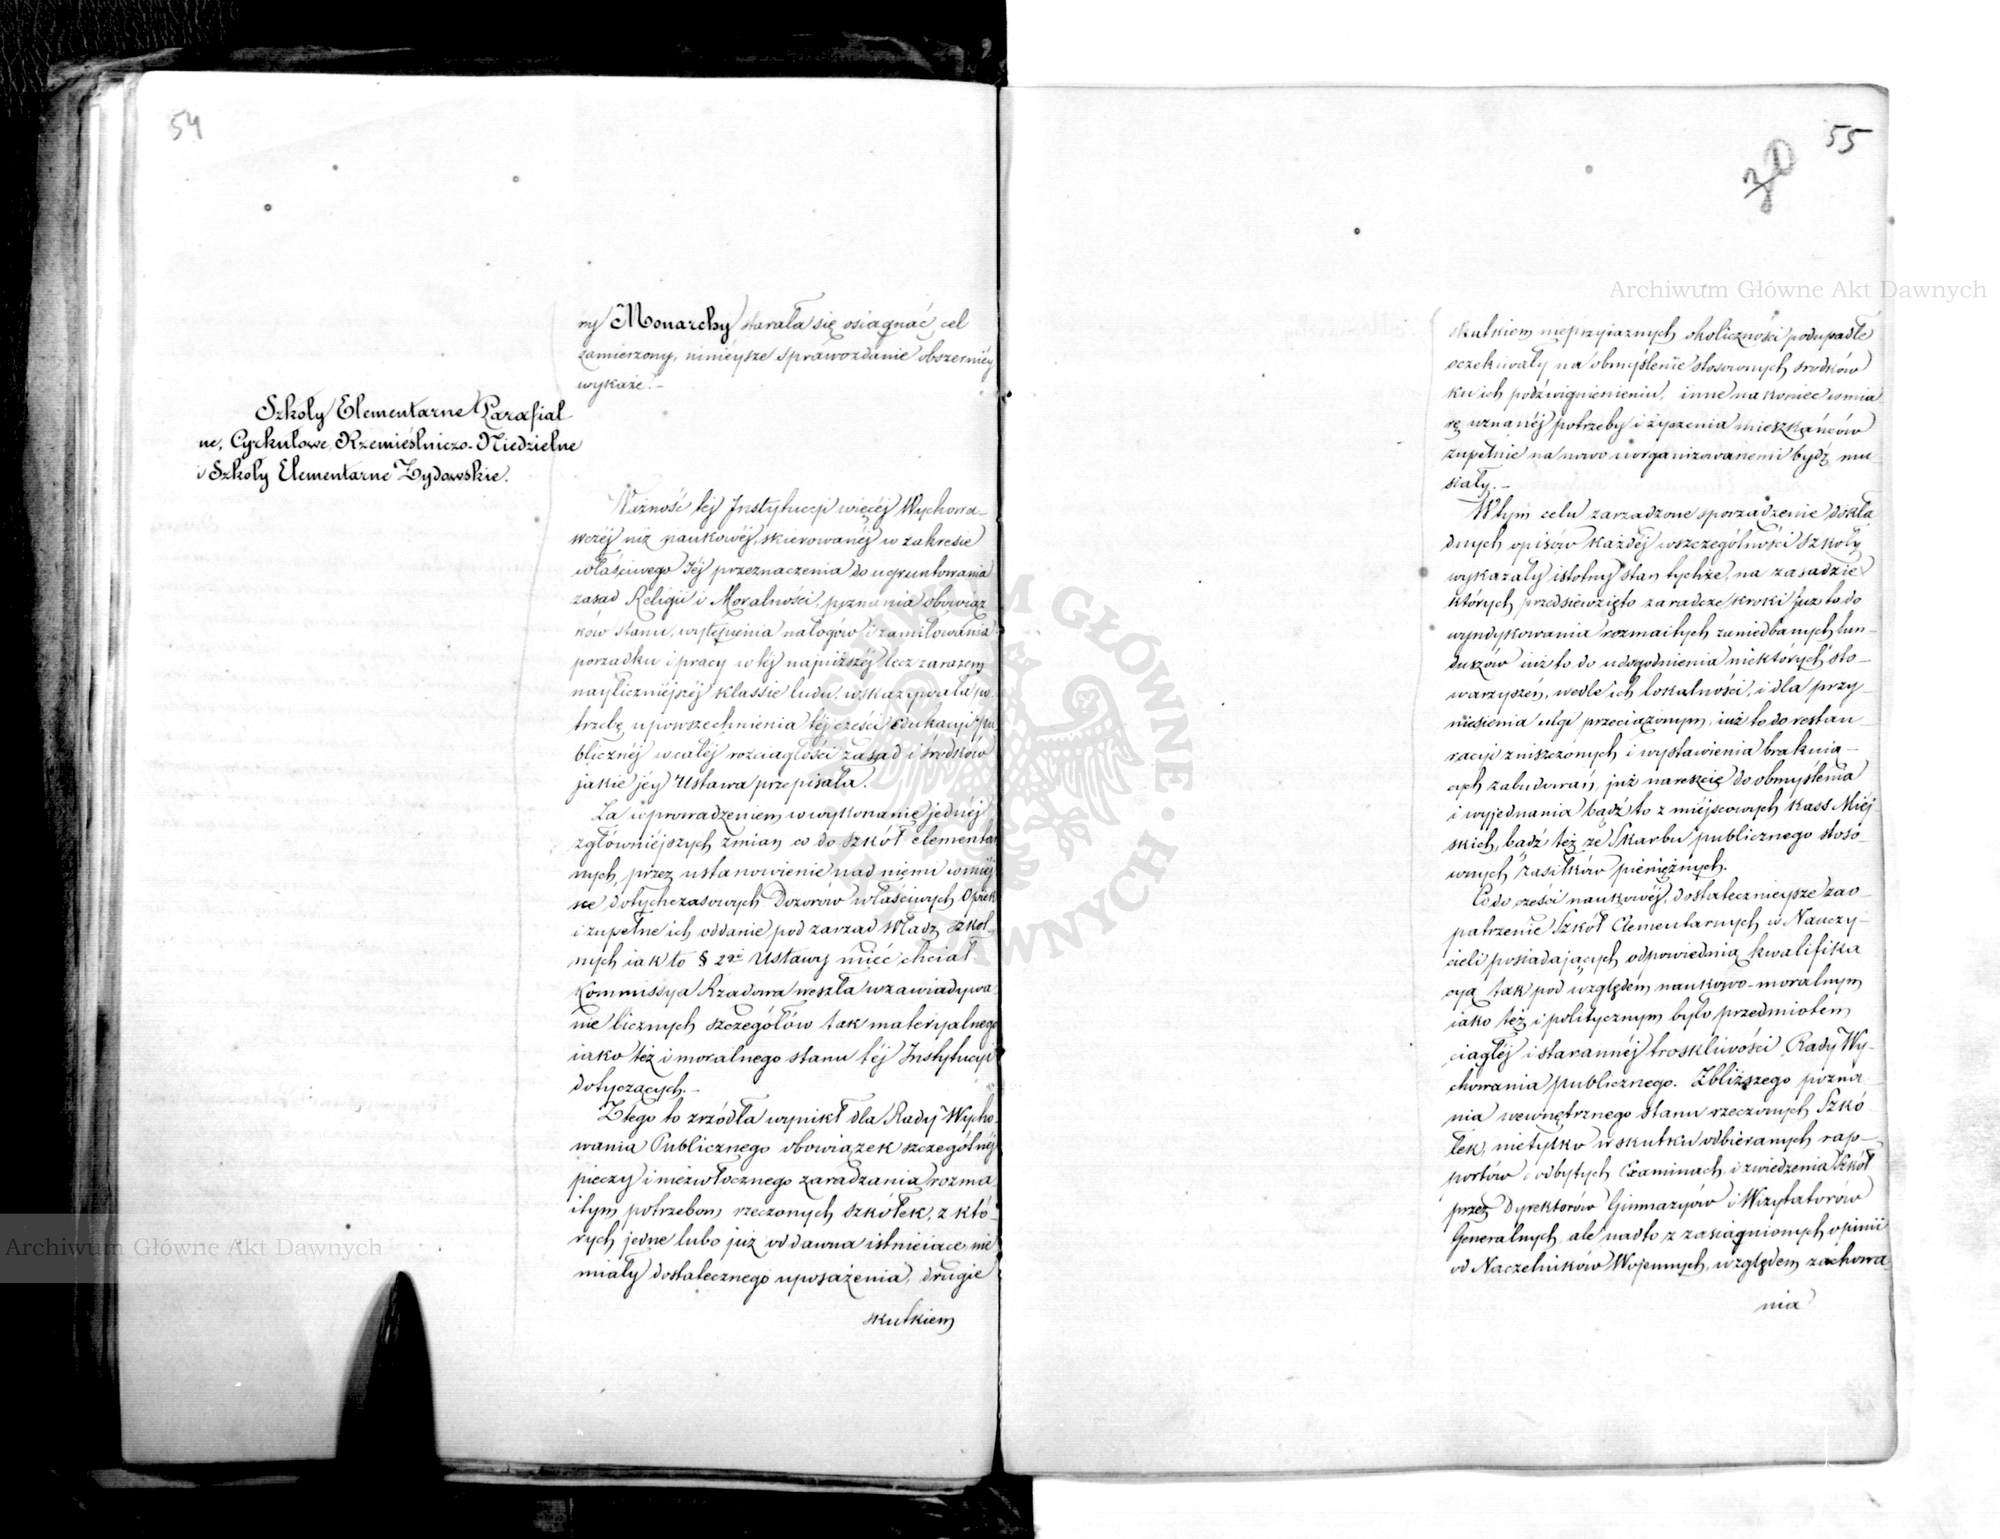 54
ny Monarchy starała się osiągnąć cel
zamierzony, ninieysze sprawozdanie obszerniey
wykaże.-
Szkoły Elementarne Parafial
ne, Cyrkułowe, Rzemieślniczo-Niedzielne
i Szkoły Elementarne Żydowskie.
Ważność téj Instytucyi więcéj Wychowa-
wczéj niż naukowéj, skierowanéj w zakresie
właściwego Jéj przeznaczenia do ugruntowania
zasad Religii i Moralności, poznania obowiąz
ków stanu, wytępienia nałogów i zamiłowania
porządku i pracy w téj najniższéj lecz zarazem
nayliczniejszéj klassie ludu, wskazywała po
trzebę upowszechnienia téj części edukacyi pu
blicznéj w całéj rozciągłości zasad i środków
jakie jéy Ustawa przepisała.
Za wprowadzeniem w wykonanie jednéj
z główniejszych zmian co do szkół elementar
nych, przez ustanowienie nad niemi w miéj
sce dotychczasowych Dozorów właściwych Opiek
i zupełne ich oddanie pod zarząd Władz szkol-
nych iak to § 2gi Ustawy mieć chciał
Kommissya Rządowa weszła w zawiadywa
nie licznych szczegółów tak materyalnego
iako też i moralnego stanu téj Instytucyi
dotyczących.-
Z tego to zrzódła wynikł dla Rady Wycho-
wania Publicznego obowiązek szczególnéj
pieczy i niezwłocznego zaradzania rozma
itym potrzebom rzeczonych szkółek, z któ-
rych jedne lubo już od dawna istnieiące, nie
miały dostatecznego uposażenia, drugie
skutkiem
55
skutkiem nieprzyiaznych okoliczności podupadłe
oczekiwały na obmyślenie stosownych srodków
ku ich podźwignienieniu, inne nakoniec w mia
rę uznanéj potrzeby i życzenia mieszkańców
zupełnie na nowo uorganizowanemi bydź mu
siały.-
W tym celu zarządzone sporządzenie dokła
dnych opisów każdéj w szczególności szkoły
wykazały istotny stan tychże, na zasadzie
których przedsiewzięto zaradcze kroki już to do
wyndykowania rozmaitych zaniedbanych fun-
duszów iuż to do udogodnienia niektórych sto-
warzyszeń, wedle ich lokalności, i dla przy-
niesienia ulgi przeciążonym, iuż to do restau
racyi zniszczonych i wystawienia brakuią-
cych zabudowań, już nareszcie do obmyślenia
i wyjednania bądź to z miejscowych kass Miej
skich, bądź też ze Skarbu publicznego stoso-
wnych zasiłków pieniężnych.
Co do części naukowéj, dostatecznieysze zao-
patrzenie Szkół Elementarnych w Nauczy-
cieli posiadających odpowiednią kwalifika
cyą tak pod względem naukowo-moralnym
iako też i politycznym było przedmiotem
ciągłéj i starannéj troskliwości Rady Wy-
chowania publicznego. Zbliższego pozna
nia wewnętrznego stanu rzeczonych Szkó
łek, nietylko w skutku odbieranych rap-
portów o odbytych Examinach, i zwiedzenia Szkół
przez Dyrektorów Gimnazyów i Wizytatorów
Generalnych, ale nadto z zasiągnionych opinii
od Naczelników Wojennych, względem zachowa
nia
Archiwum Główne Akt Dawnych
Archiwum Główne Akt Dawnych